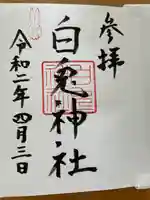 参拝
白兎神社
令和二年四月三日